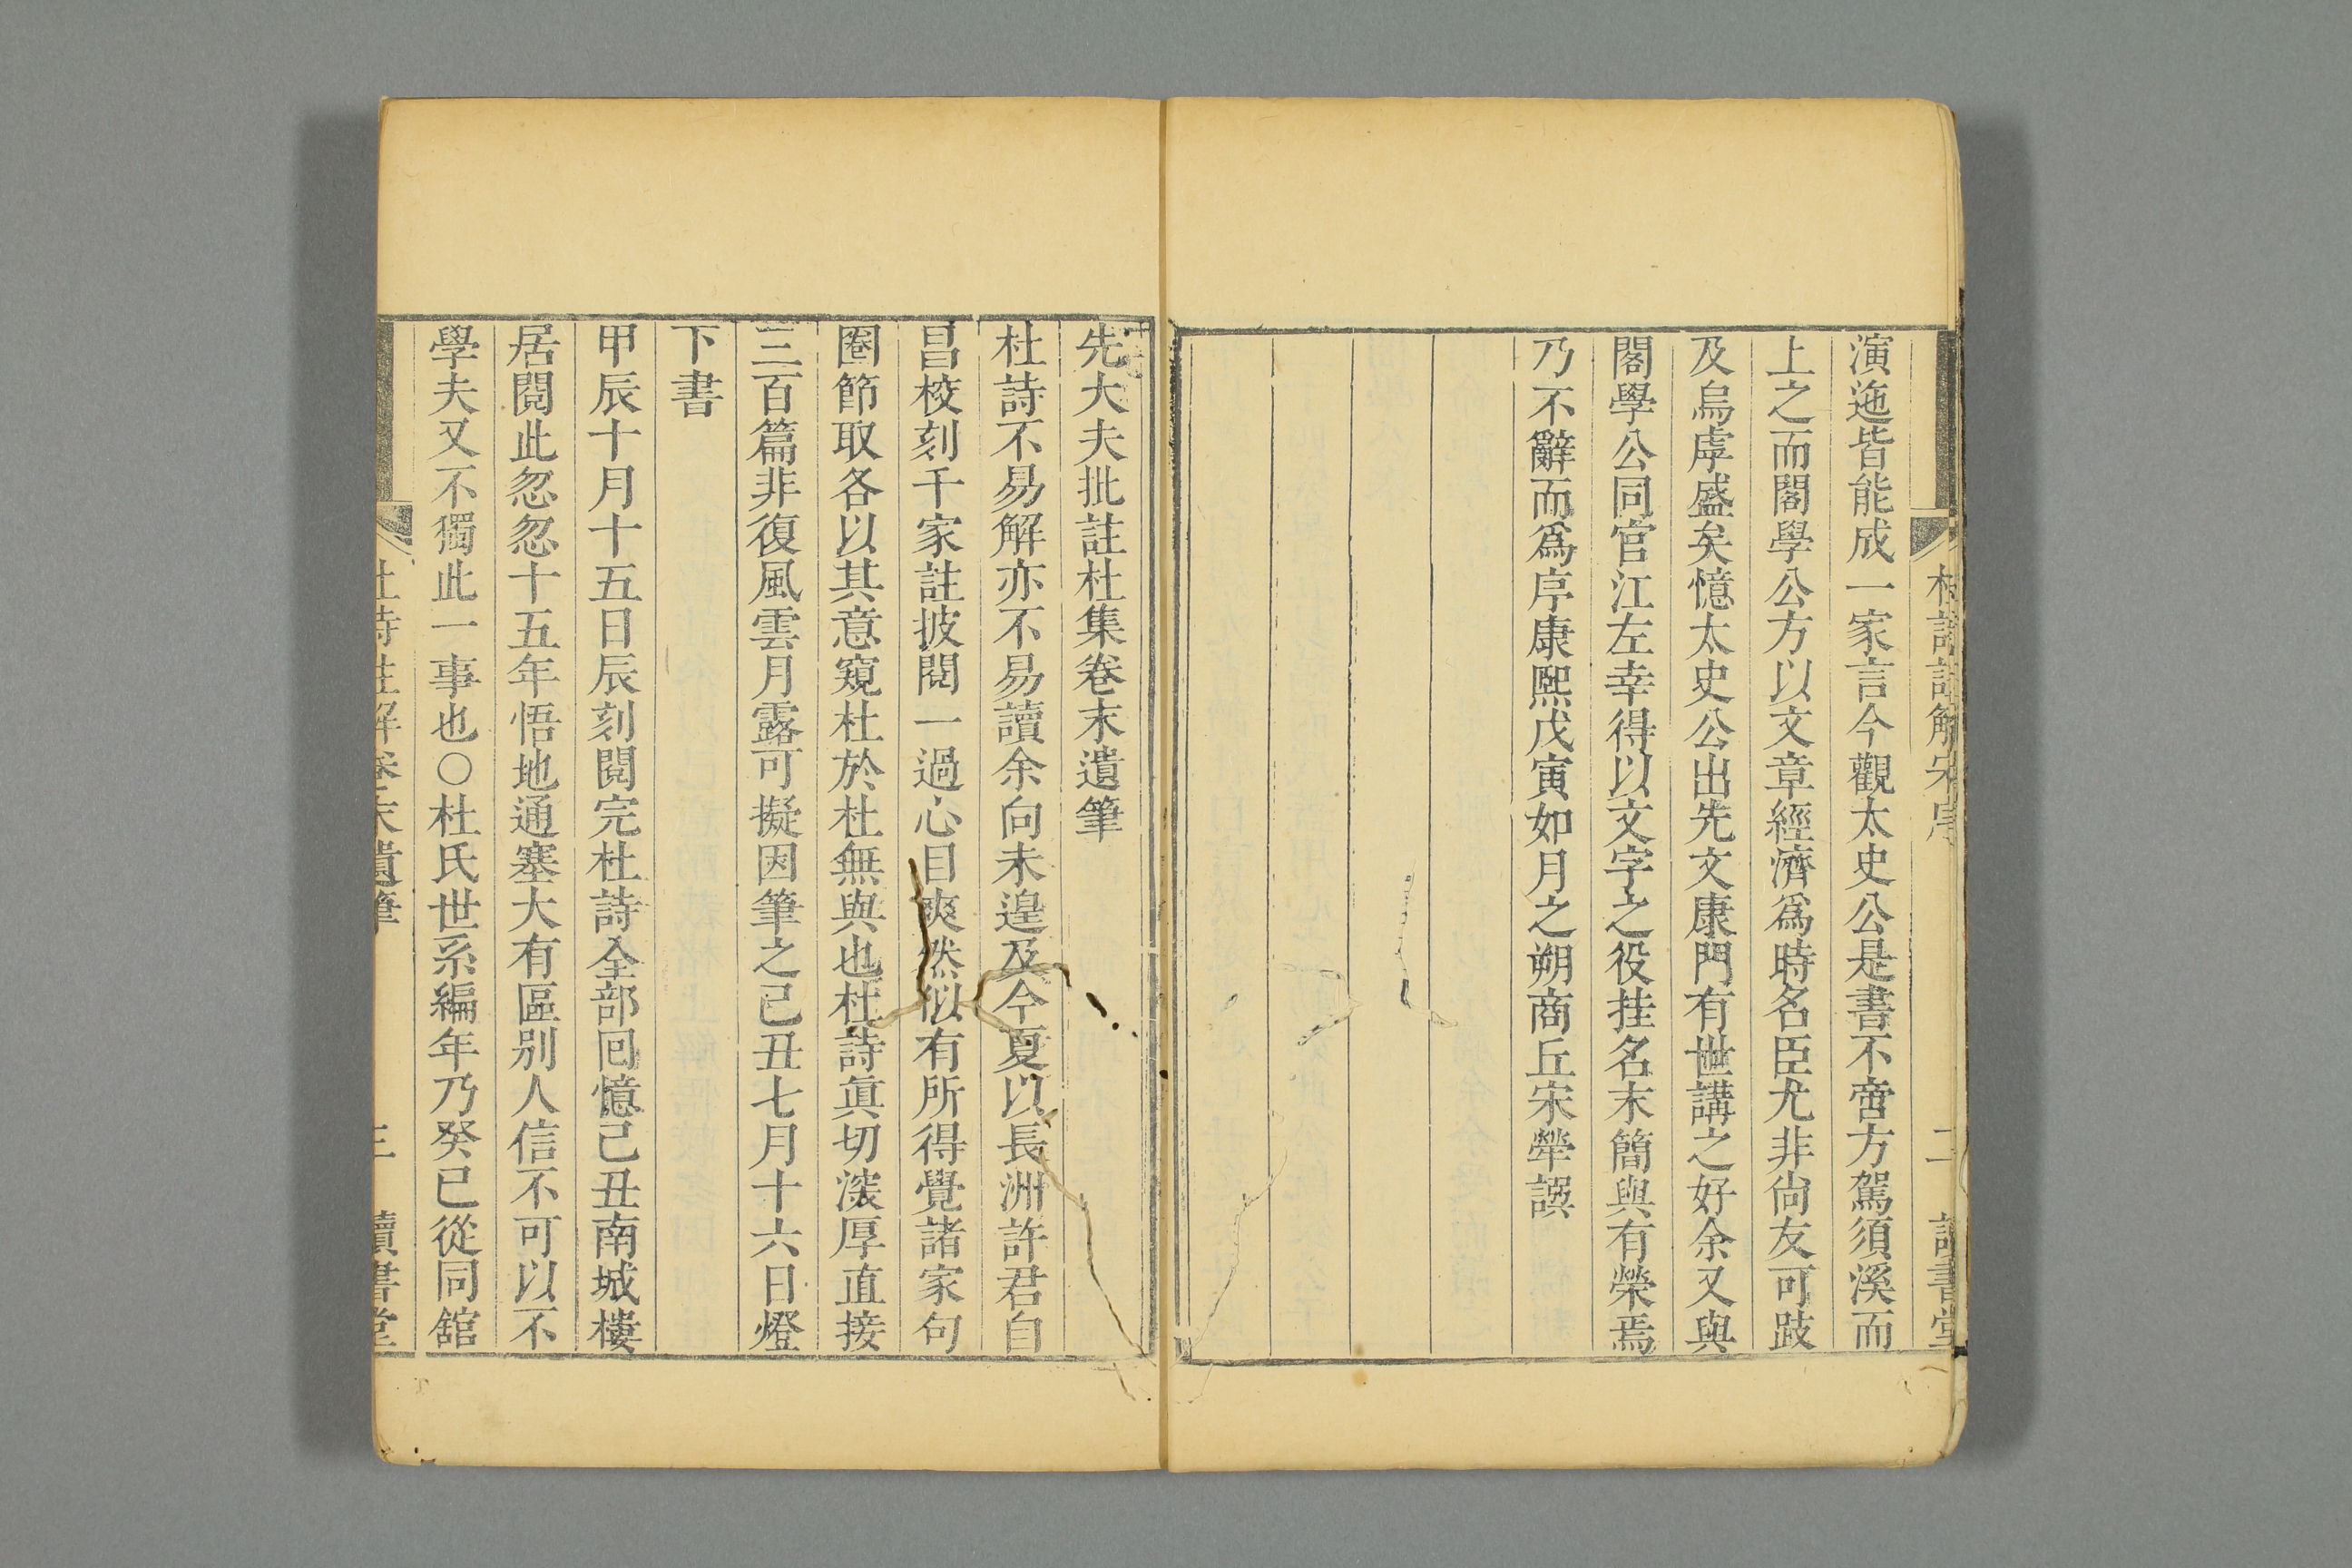 杜詩註解宋序 二 讀書堂
演迤皆能成一家言今觀太史公是書不啻方駕須溪而
上之而閣學公方以文章經濟爲時名臣尤非尙友可跂
及烏虖盛矣憶太史公出先文康門有世講之好余又與
閣學公同官江左幸得以文字之役挂名末簡與有榮焉
乃不辭而爲序康熙戊寅如月之朔商丘宋犖譔
先大夫批註杜集卷末遺筆
杜詩不易解亦不易讀余向未遑及今夏以長洲許君自
昌校刻千家註披閱一過心目爽然似有所得覺諸家句
圈節取各以其意窺杜於杜無與也杜詩眞切深厚直接
三百篇非復風雲月露可擬因筆之己丑七月十六日燈
下書
甲辰十月十五日辰刻閱完杜詩全部回憶己丑南城樓
居閱此忽忽十五年悟地通塞大有區别人信不可以不
學夫又不獨此一事也○杜氏世系編年乃癸巳從同舘
杜詩註解卷末遺筆 三 讀書堂